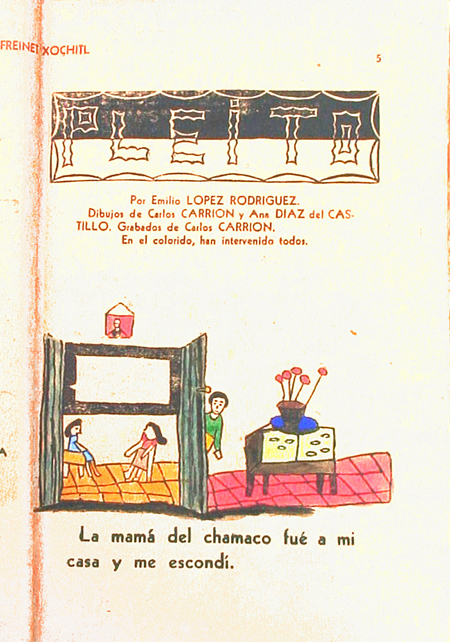 FREINET XOCHITL
5
PLEITO
Por Emilio LOPEZ RODRIGUEZ.
Dibujos de Carlos CARRION y Ana DIAZ del CAS-
TILLO. Grabados de Carlos CARRION.
En el colorido, han intervenido todos.
La mamá del chamaco fué a mi
casa y me escondí.